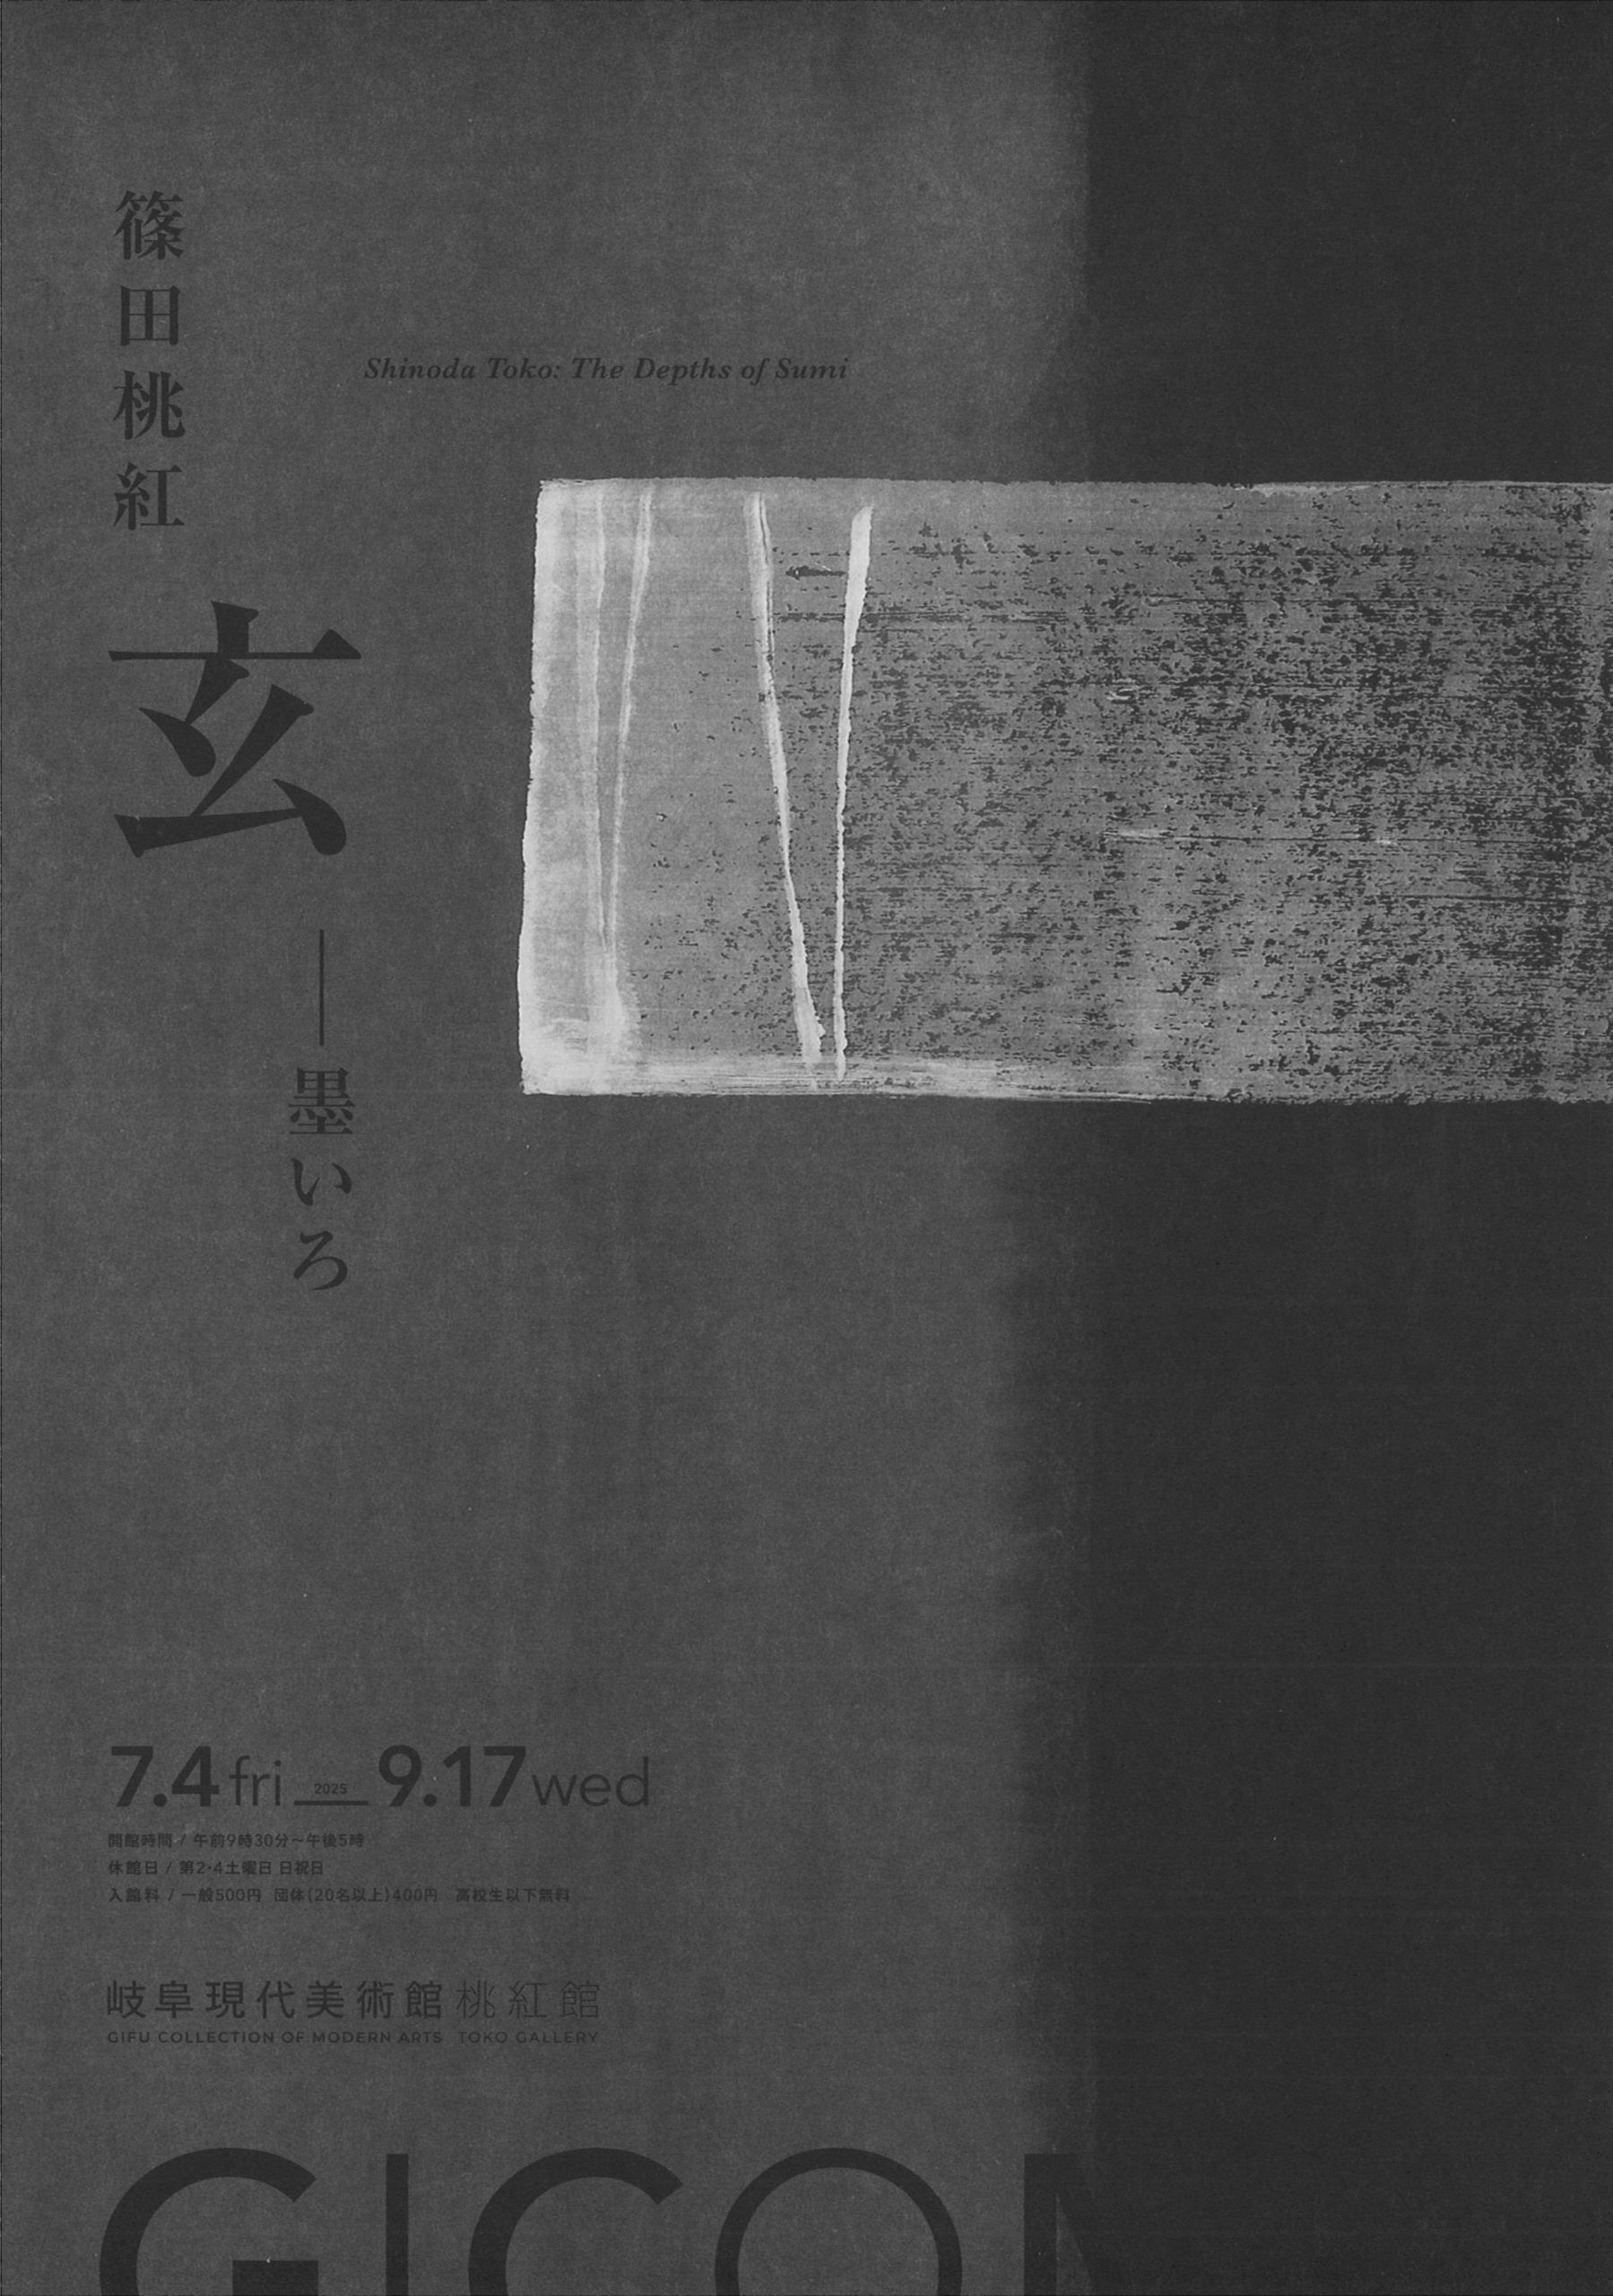 篠田桃紅
玄
—墨いろ
Shinoda Toko: The Depths of Sumi
7.4 fri 2025 9.17 wed
開館時間 / 午前9時30分～午後5時
休館日 / 第2・4土曜日 日祝日
入館料 / 一般500円 団体(20名以上)400円 高校生以下無料
岐阜現代美術館 桃紅館
GIFU COLLECTION OF MODERN ARTS TOKO GALLERY